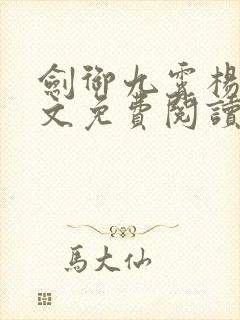 劍御九霄楊
文免費閱讀
馬大仙